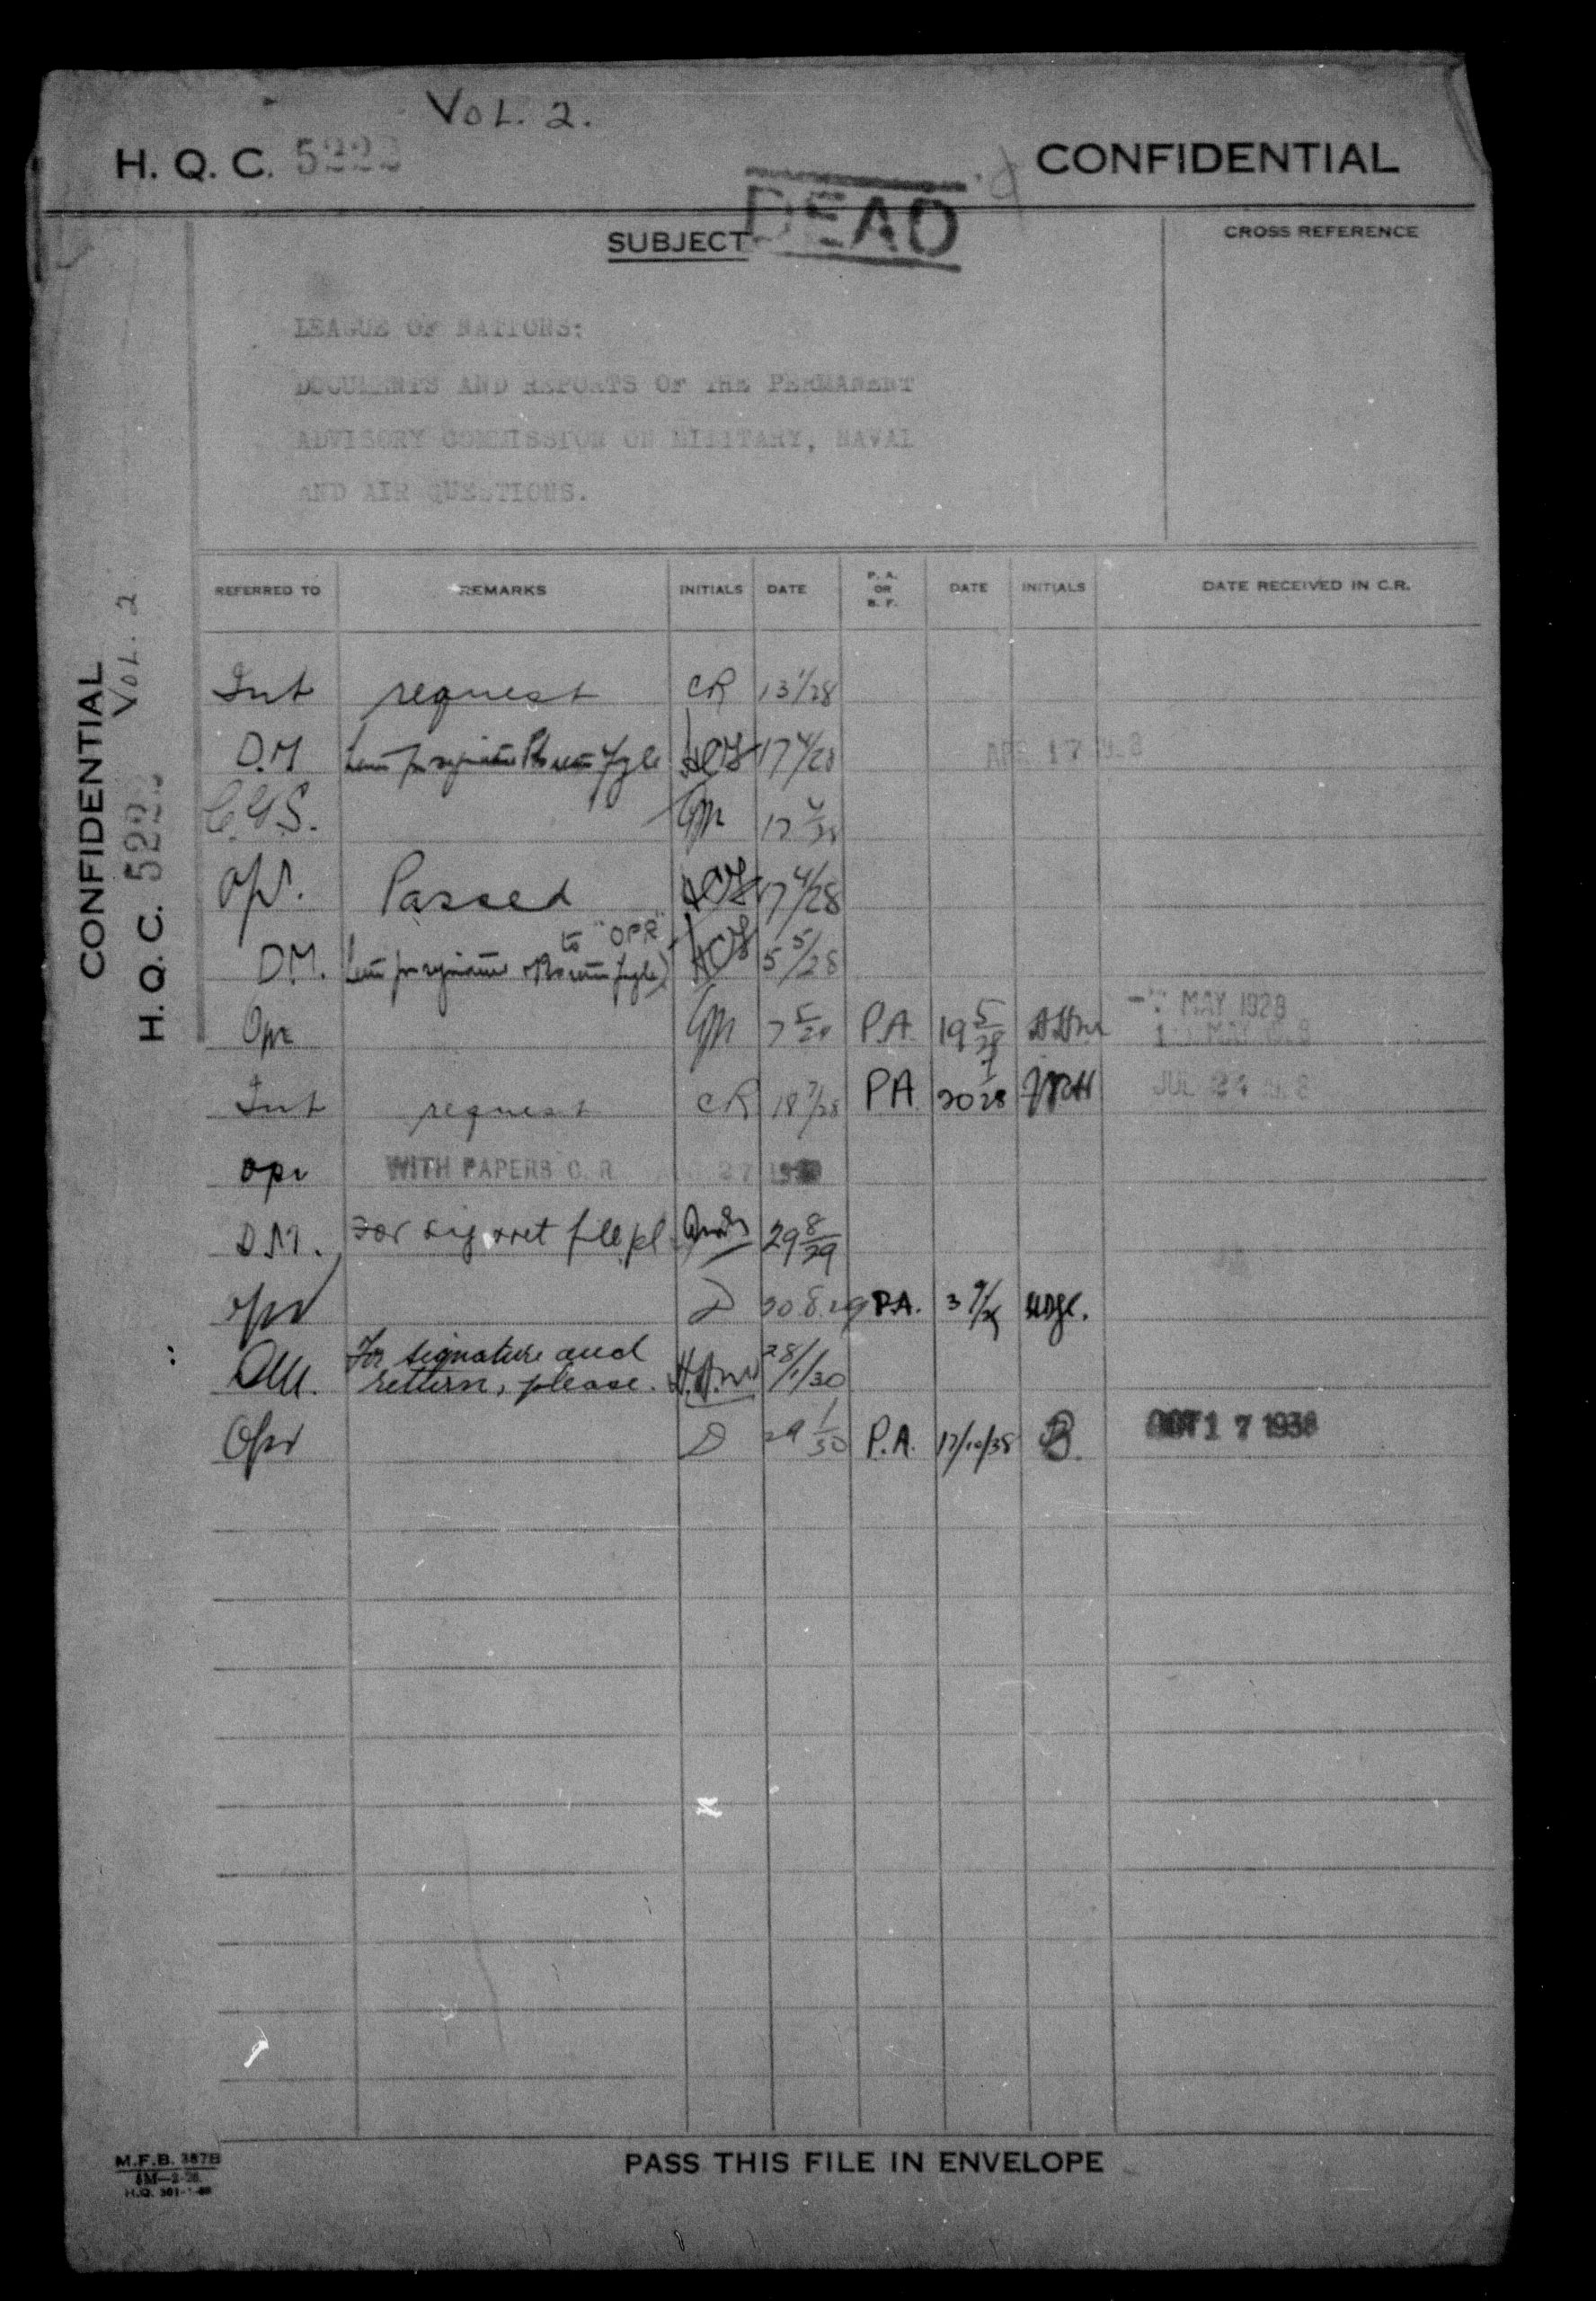 VOL. 2.
H. Q. C. 5222
CONFIDENTIAL
DEAD
SUBJECT
CROSS REFERENCE
LEAGUE OF NATIONS:
DOCUMENTS AND REPORTS OF THE PERMANENT
ADVISORY COMMISSION ON MILITARY, NAVAL
AND AIR QUESTIONS.
CONFIDENTIAL
H. Q. C. 522
VOL. 2
REFERRED TO REMARKS INITIALS DATE P. A. OR B. F. DATE INITIALS DATE RECEIVED IN C.R.
Int request CR 13 1/28
D.M. 17 4/28 APR 17
C.G.S. 17 4/28
Opr. Passed 17 4/28
to "OPR"
D.M. 5 5/28
Opr 7 5/28 P.A. 19 5/28 MAY 1928
Int request CR 18 7/28 PA 20 7/28 JUL 24
opr WITH PAPERS C. R. 27
D.M. For sig & ret pl 29 8/29
opr D 30.8.29 P.A. 3 9/29
DM. For signature and
return, please. 28/1/30
Opr D 29 1/30 P.A. 17/10/38 B. OCT 17 1938
PASS THIS FILE IN ENVELOPE
M.F.B. 387B